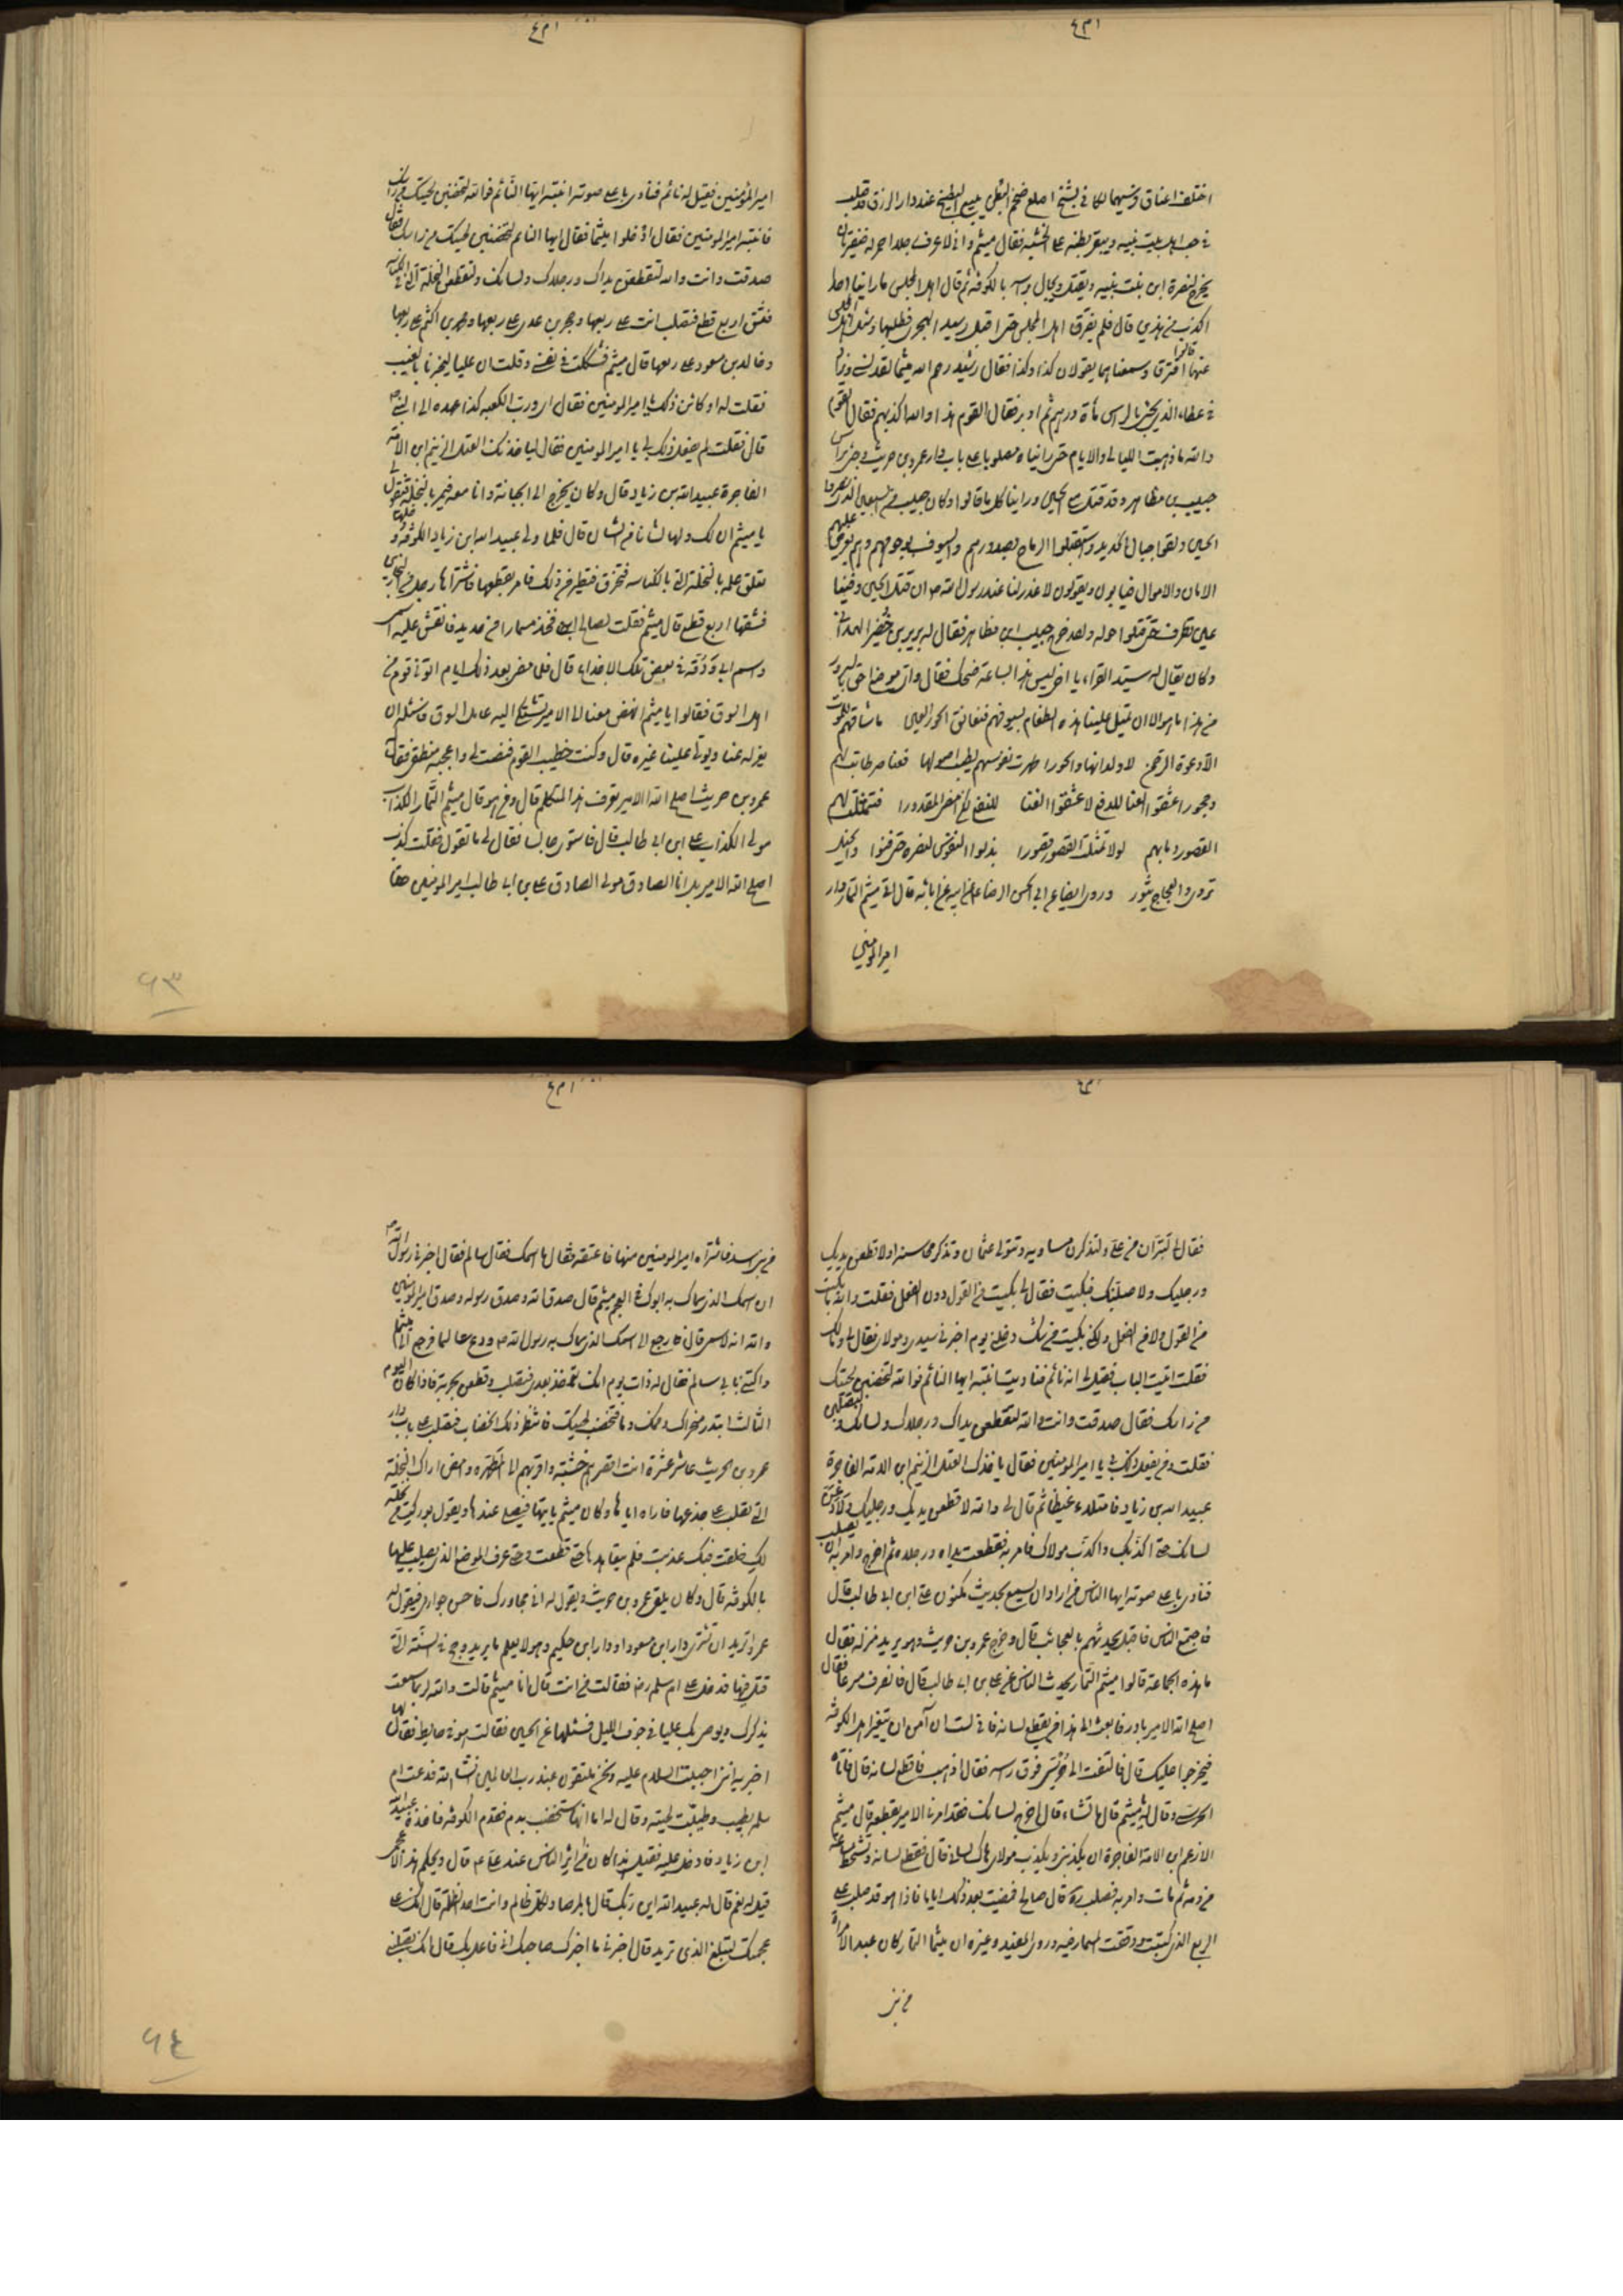 اختلف اعناق فرسيهما لكاني بشيخ اصلع ضخم البطن يبيع البطيخ عند دار الرزق قد صلب
في حب اهل بيت نبيه ويبقر بطنه على الخشبه فقال ميثم واني لاعرف رجلا احمر له ضفيرتان
يخرج لنصرة ابن بنت نبيه ويقتل ويجال براسه بالكوفه ثم قال اهل المجلس ما راينا احدا
اكذب من هذين قال فلم يفترق اهل المجلس حتى اقبل رشيد الهجري فطلبهما وسئل اهل المجلس
عنهما قالوا افترقا وسمعناهما يقولان كذا وكذا فقال رشيد رحم الله ميثما لقد نسي ويزاد
في عطاء الذي يجئ بالراس مأة درهم ثم ادبر فقال القوم هذا والله اكذبهم فقال القوم
والله ما ذهبت الليالي والايام حتى رايناه مصلوبا على باب دار عمرو بن حريث وجئ براس
حبيب بن مظاهر وقد قتل مع الحسين وراينا كل ما قالوا وكان حبيب من السبعين الذين نصروا
الحسين ولقوا جبال الحديد واستقبلوا الرماح بصدورهم والسيوف بوجوههم وهم يعرض عليهم
الامان والاموال فيابون ويقولون لا عذر لنا عند رسول الله ص ان قتل الحسين وفينا
عين تطرف حتى قتلوا حوله ولقد خرج حبيب ابن مظاهر فقال له برير بن خضير الهمداني
وكان يقال له سيد القراء يا اخي ليس هذه الساعة ضحك فقال واي موضع احق بالسرور
من هذا ما هو الا ان تميل علينا هذه الطغام بسيوفهم فنعانق الحور العين ما شاقهم للموت
الا دعوة الرحمن لا ولدانها والحورا طهرت نفوسهم بطيب اصولها فعناصر طابت لهم
وحجورا عشقوا العنا للدفع لا عشقوا الغنا للنفع لكن امضى المقدورا فتمثلت لهم
القصور وما بهم لولا تمثلت القصور قصورا بذلوا النفوس لنصره حتى قضوا والخيل
تردى والعجاج يثور وروى ايضا عن ابي الحسن الرضا عن ابيه عن ابائه قال اتى ميثم التمار دار
امير المومنين
امير المؤمنين فقيل له نائم فنادى باعلى صوته انتبه ايها النائم فوالله لتخضبن لحيتك من راسك
فانتبه امير المومنين فقال ادخلوا ميثما فقال ايها النائم لتخضبن لحيتك من راسك فقال
صدقت وانت والله لتقطعن يداك ورجلاك ولسانك ولتقطعن النخلة التي في الكناسه
فتشق اربع قطع فتصلب انت على ربعها وحجر بن عدى على ربعها ومحمد بن اكثم على ربعها
وخالد بن مسعود على ربعها قال ميثم فشككت في نفسي وقلت ان عليا ليخبرنا بالغيب
فقلت له او كائن ذلك يا امير المومنين فقال اي ورب الكعبه كذا عهده الي النبي ص
قال فقلت لم يفعل ذلك بي يا امير المومنين فقال لياخذنك العتل الزنيم ابن الامة
الفاجرة عبيد الله بن زياد قال وكان يخرج الى الجبانة وانا معه فيمر بالنخلة فيقول لي
يا ميثم ان لك ولها لشانا من الشان قال فلما ولي عبيد الله ابن زياد الكوفه ودخلها
تعلق علمه بالنخلة التي بالكناسه فتخرق فتطير من ذلك فامر بقطعها فاشتراها رجل من النجارين
فشقها اربع قطع قال ميثم فقلت لصالح ابني فخذ مسمارا من حديد فانقش عليه اسمي
واسم ابي ودقه في بعض تلك الاجذاع قال فلما مضى بعد ذلك ايام اتوني قوم من
اهل السوق فقالوا يا ميثم انهض معنا الى الامير نشتكي اليه عامل السوق فنسئله ان
يعزله عنا ويولى علينا غيره قال وكنت خطيب القوم فنصت لي واعجبه منطقي فقال له
عمرو بن حريث اصلح الله الامير تعرف هذا المتكلم قال ومن هو قال ميثم التمار الكذاب
مولى الكذاب علي ابن ابي طالب قال فاستوى جالسا فقال لي ما تقول فقلت كذب
اصلح الله الامير بل انا الصادق مولى الصادق علي بن ابي طالب امير المومنين حقا
٩٣
فقال لي لتبران من علي ولتذكرن مساويه وتتولى عثمان وتذكر محاسنه اولا قطعن يديك
ورجليك ولاصلبنك فبكيت فقال لي بكيت من القول دون الفعل فقلت والله ما بكيت
من القول ولا من الفعل ولكن بكيت من شك دخلني يوم اخبرني سيدي ومولاي فقال لي وما قال لك
فقلت اتيت الباب فقيل لي انه نائم فناديت انتبه ايها النائم فوالله لتخضبن لحيتك
من راسك فقال صدقت وانت والله لتقطعن يداك ورجلاك ولسانك ولتصلبن
فقلت ومن يفعل ذلك بي يا امير المومنين فقال ياخذك العتل الزنيم ابن الامة الفاجرة
عبيد الله بن زياد فامتلاء غيظا ثم قال لي والله لاقطعن يديك ورجليك ولادعن
لسانك حتى اكذبك واكذب مولاك فامر به فقطعت يداه ورجلاه ثم اخرج وامر به ان يصلب
فنادى باعلى صوته ايها الناس من اراد ان يسمع الحديث المكنون عن علي ابن ابي طالب قال
فاجتمع الناس فاقبل يحدثهم بالعجائب قال وخرج عمرو بن حريث وهو يريد منزله فقال
ما هذه الجماعة قالوا ميثم التمار يحدث الناس عن علي بن ابي طالب قال فانصرف مسرعا فقال
اصلح الله الامير بادر فابعث الى هذا من يقطع لسانه فاني لست آمن ان يتغير اهل الكوفه
فيخرجوا عليك قال فالتفت الى حرسي فوق راسه فقال اذهب فاقطع لسانه قال فاتاه
الحرسي وقال له يا ميثم قال ما تشاء قال اخرج لسانك فقد امرنا الامير بقطعه قال ميثم
الا زعم ابن الامة الفاجرة ان يكذبني ويكذب مولاي هاك لساني قال فقطع لسانه وتشحط ساعة
من دمه ثم مات وامر به فصلب قال صالح فمضيت بعد ذلك بايام فاذا هو قد صلب على
الربع الذي كتبت ودققت المسمار فيه وروى المفيد وغيره ان ميثما التمار كان عبد الامراة
من بني
من بني اسد فاشتراه امير المومنين منها فاعتقه فقال ما اسمك فقال سالم فقال اخبرني رسول الله ص
ان اسمك الذي سماك به ابوك في العجم ميثم قال صدق الله وصدق رسوله وصدق امير المومنين
والله انه لاسمي قال فارجع الى اسمك الذي سماك به رسول الله ص ودع سالما فرجع الى ميثم
واكتنى بابي سالم فقال له ذات يوم انك تؤخذ بعدي فتصلب وتطعن بحربة فاذا كان اليوم
الثالث ابتدر منخراك وفمك دما فتخضب لحيتك فانتظر ذلك الخضاب فتصلب على باب دار
عمرو بن حريث عاشر عشرة انت اقصرهم خشبة واقربهم الى المطهره وامض اراك النخلة
التي تصلب على جذعها فاراه اياها وكان ميثم ياتيها فيصلى عندها ويقول بوركت من نخلة
لك خلقت ولي غذيت فلم يتعاهدها حتى قطعت وحتى عرف الموضع الذي يصلب عليها
بالكوفه قال وكان يلقى عمرو بن حريث ويقول له اني مجاورك فاحسن جواري فيقول له
عمرو اتريد ان تشترى دار ابن مسعود او دار ابن حكيم وهو لا يعلم ما يريد وحج في السنة التي
قتل فيها فدخل على ام سلمه رض فقالت من انت قال انا ميثم قالت والله لربما سمعت
يذكرك ويوصى بك عليا في جوف الليل فسئلها عن الحسين فقالت هو في حايط لها فقال
اخبريه انني احببت السلام عليه ونحن ملتقون عند رب العالمين انشاء الله فدعت ام
سلمه بطيب وطيبت لحيته وقال له اما انها ستخضب بدم فقدم الكوفه فاخذه عبيد الله
ابن زياد فادخل عليه فقيل هذا كان من اثر الناس عند علي ع قال ويحكم هذا الاعجمى
قيل له نعم قال له عبيد الله اين ربك قال بالمرصاد لكل ظالم وانت احد الظلمة قال انك على
عجمتك لتبلغ الذي تريد قال اخبرني ما اخبرك صاحبك اني فاعل بك قال انك تصلبني
٩٤